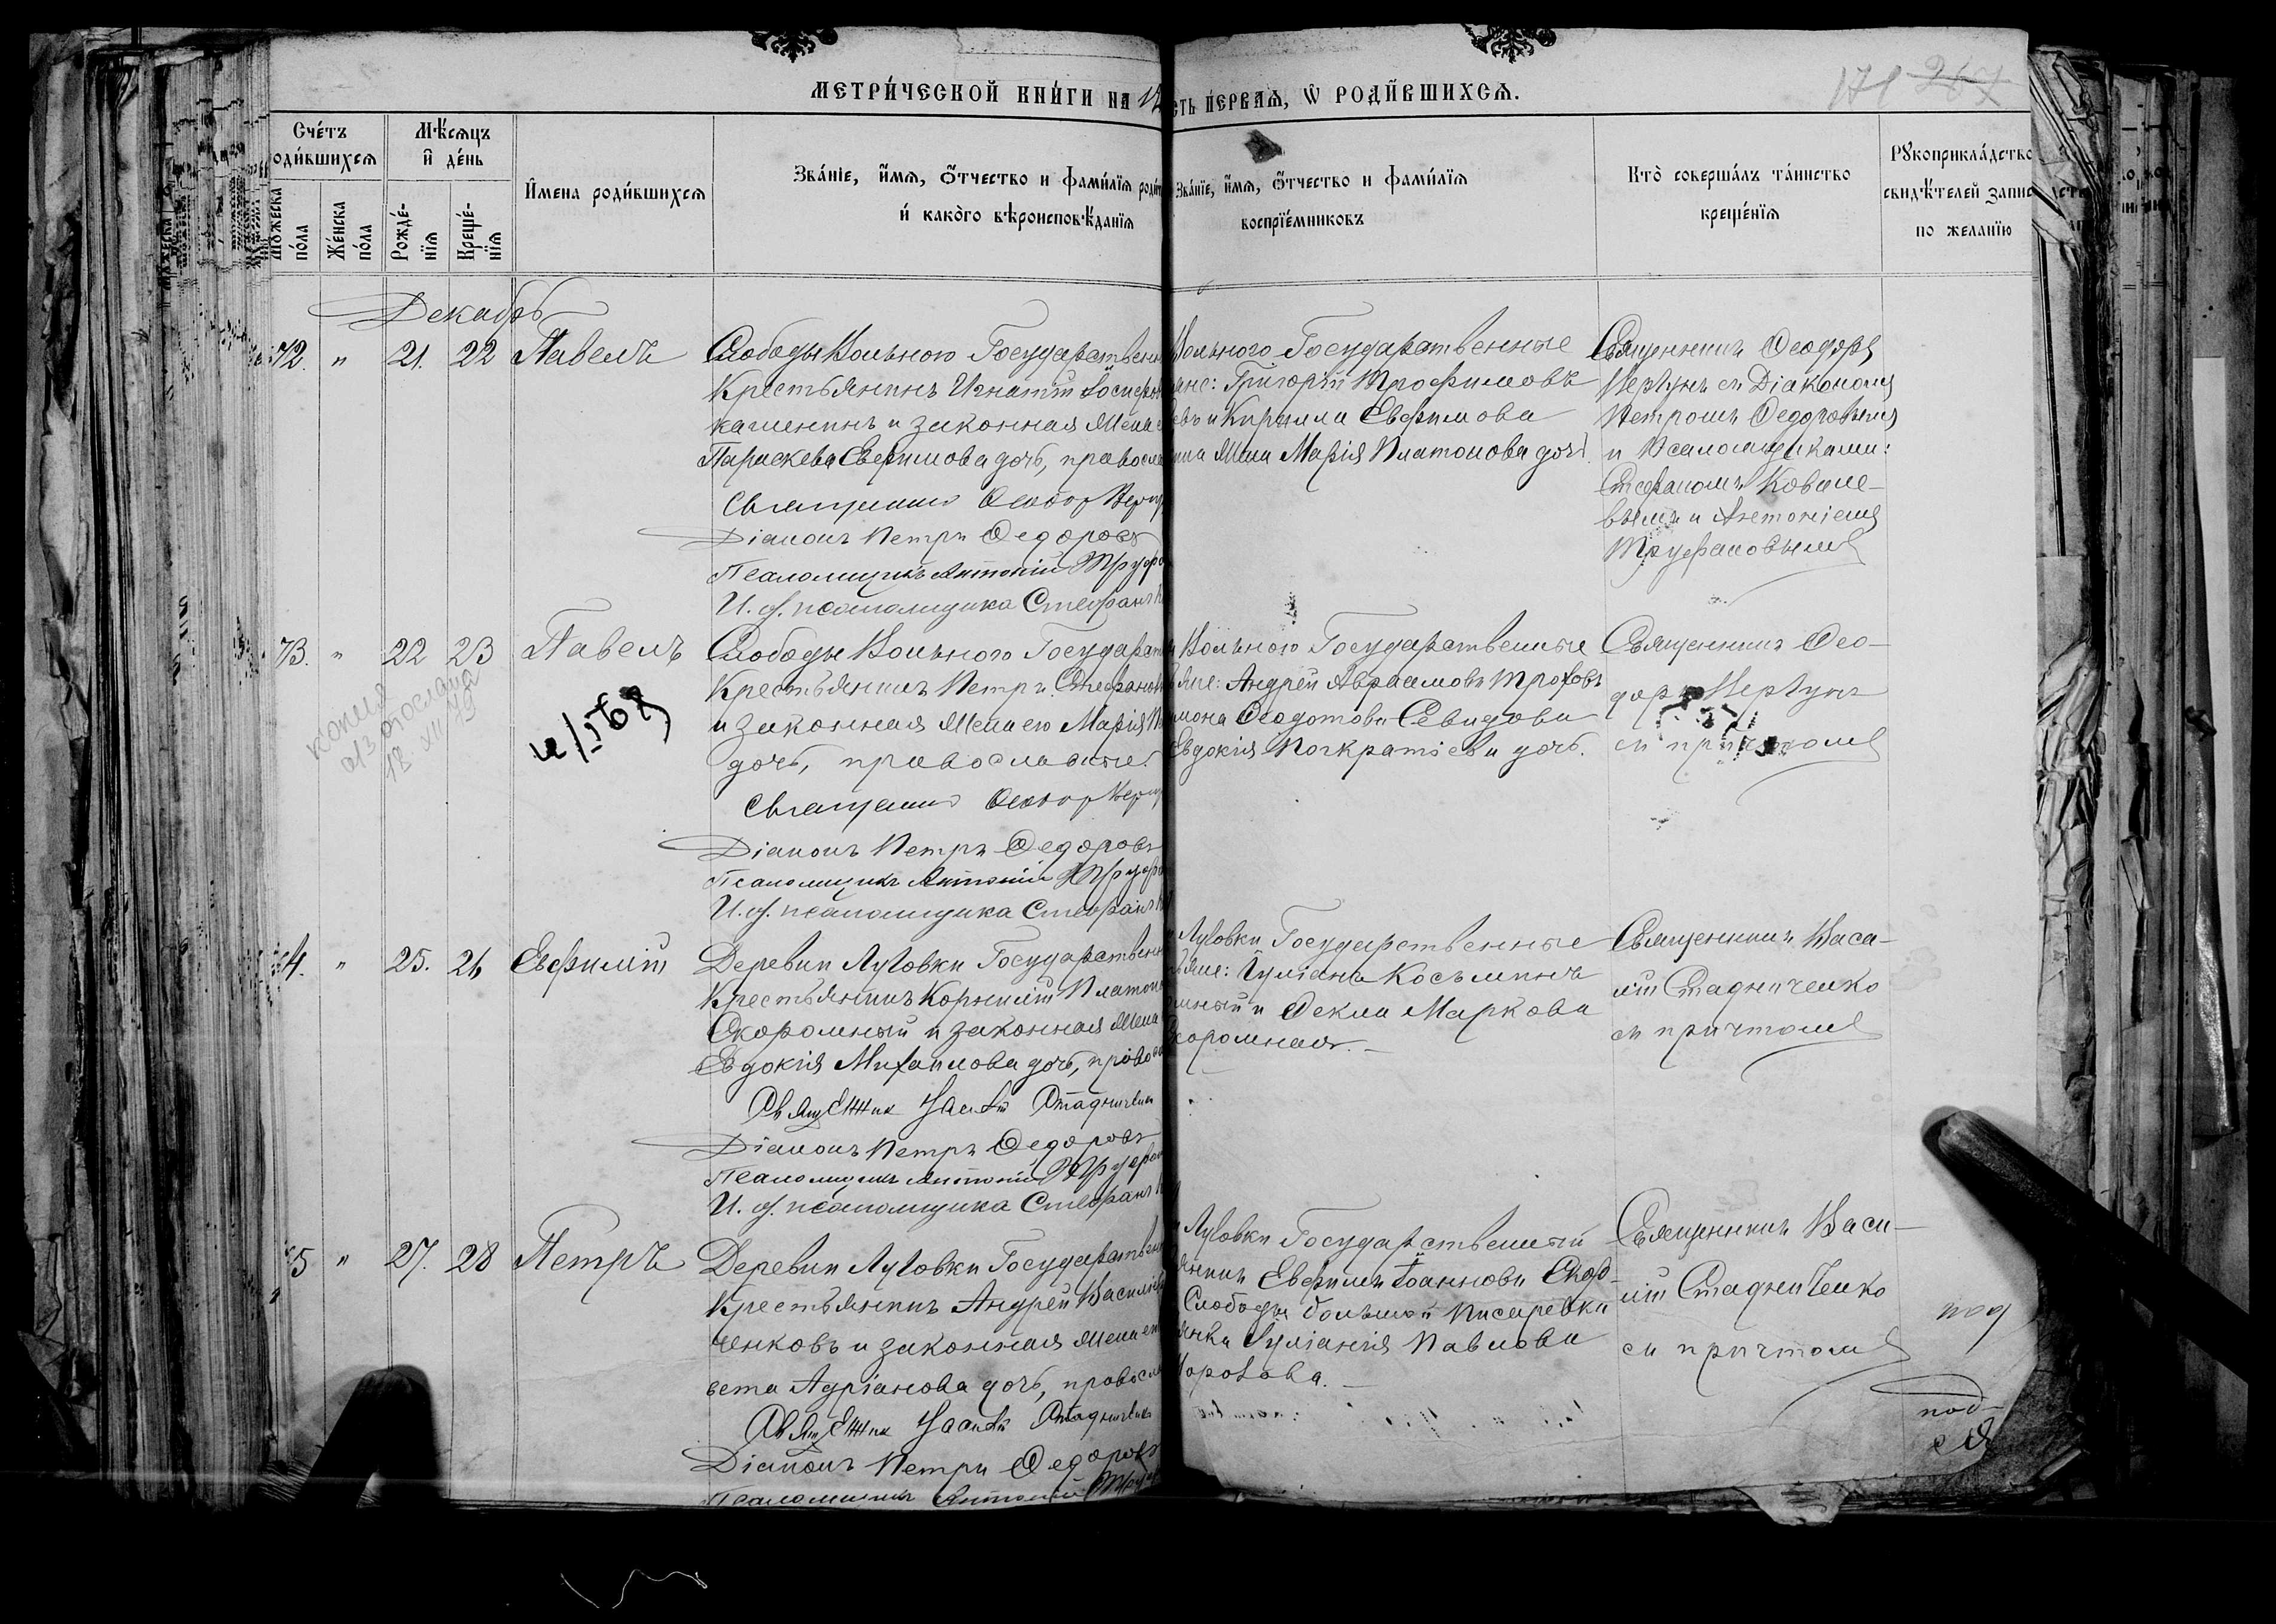 МЕТРИ́ЧЕСКОЙ КНИ́ГИ НА 18
СТЬ ПЕ́РВАЯ, Ѡ҆ РОДИ́ВШИХСЯ.
171 267
Сче́тъ
роди́вшихся
Мѣ́сяцъ
и҆ де́нь
Мꙋ́жеска по́ла
Же́нска по́ла
Рожде́-нїя
Креще́-нїя
И҆мена роди́вшихся
Зва́нїе, и҆́мя, ѻ҆́тчество и фами́лїя роди
и́ како́го вѣроисповѣ́данїя
Зва́нїе, и҆́мя, ѻ҆́тчество и фами́лїя
воспрїе́мниковъ
Кто̀ соверша́лъ та́инство
креще́нїя
Рꙋкоприкла́дство
свидѣ́телей запис
по желанїю
Декабрь
72. " 21. 22 Павелъ
Слободы Вольного Государственн
Крестьянинъ Игнатій Іосифов
кашенинъ и законная жена е
Параскева Евфимова дочь, правосл
Священникъ Ѳеодор Верг
Діаконъ Петръ Ѳедоровъ
Псаломщикъ Антоній Труфа
И. д. псаломщика Стефанъ К
Вольного Государственные
яне: Григорій Трофимовъ
евъ и Кирилла Евфимова
ина жена Марія Платонова дочь.
Священникъ Ѳеодоръ
Вергунъ съ Діакономъ
Петромъ Ѳедоровымъ
и Псаломщиками:
Стефаномъ Ковале-
вымъ и Антоніемъ
Труфановымъ
73. " 22 23 Павелъ
копия
отослана
18. XII
Слободы Вольного Государств
Крестьянинъ Петръ Стефановъ
и законная жена его Марія П
дочь, православные.
Священникъ Ѳеодор Верг
Діаконъ Петръ Ѳедоровъ
Псаломщикъ Антоній Труфа
И. д. псаломщика Стефанъ К
Вольного Государственные
яне: Андрей Авраамовъ Трофовъ
мона Ѳеодотова Севидова
Евдокія Панкратіева дочь.
Священникъ Ѳео-
доръ Вергунъ
съ причтомъ
74. " 25. 26 Евфимій
Деревни Луговки Государственн
Крестьянинъ Корнилій Платонов
Скоромный и законная жена
Евдокія Михайлова дочь, правосл
Священник Василій Стадниченко
Діаконъ Петръ Ѳедоровъ
Псаломщикъ Антоній Труфан
И. д. псаломщика Стефанъ К
Луговки Государственные
яне: Іуліанъ Косьминъ
омный и Ѳекла Маркова
Скоромная.
Священникъ Васи-
лій Стадниченко
съ причтомъ
75 " 27. 28 Петръ
Деревни Луговки Государствен
Крестьянинъ Андрей Василіев
ченковъ и законная жена ег
вета Адріанова дочь, правосл
Священник Василій Стадниченко
Діаконъ Петръ Ѳедоровъ
Псаломщикъ Антоній Труф
Луговки Государственный
янинъ Евфимъ Іоанновъ Скор-
Слободы большой Писаревки
янка Іуліанія Павлова
Священникъ Васи-
лій Стадниченко
съ причтомъ
под
под-